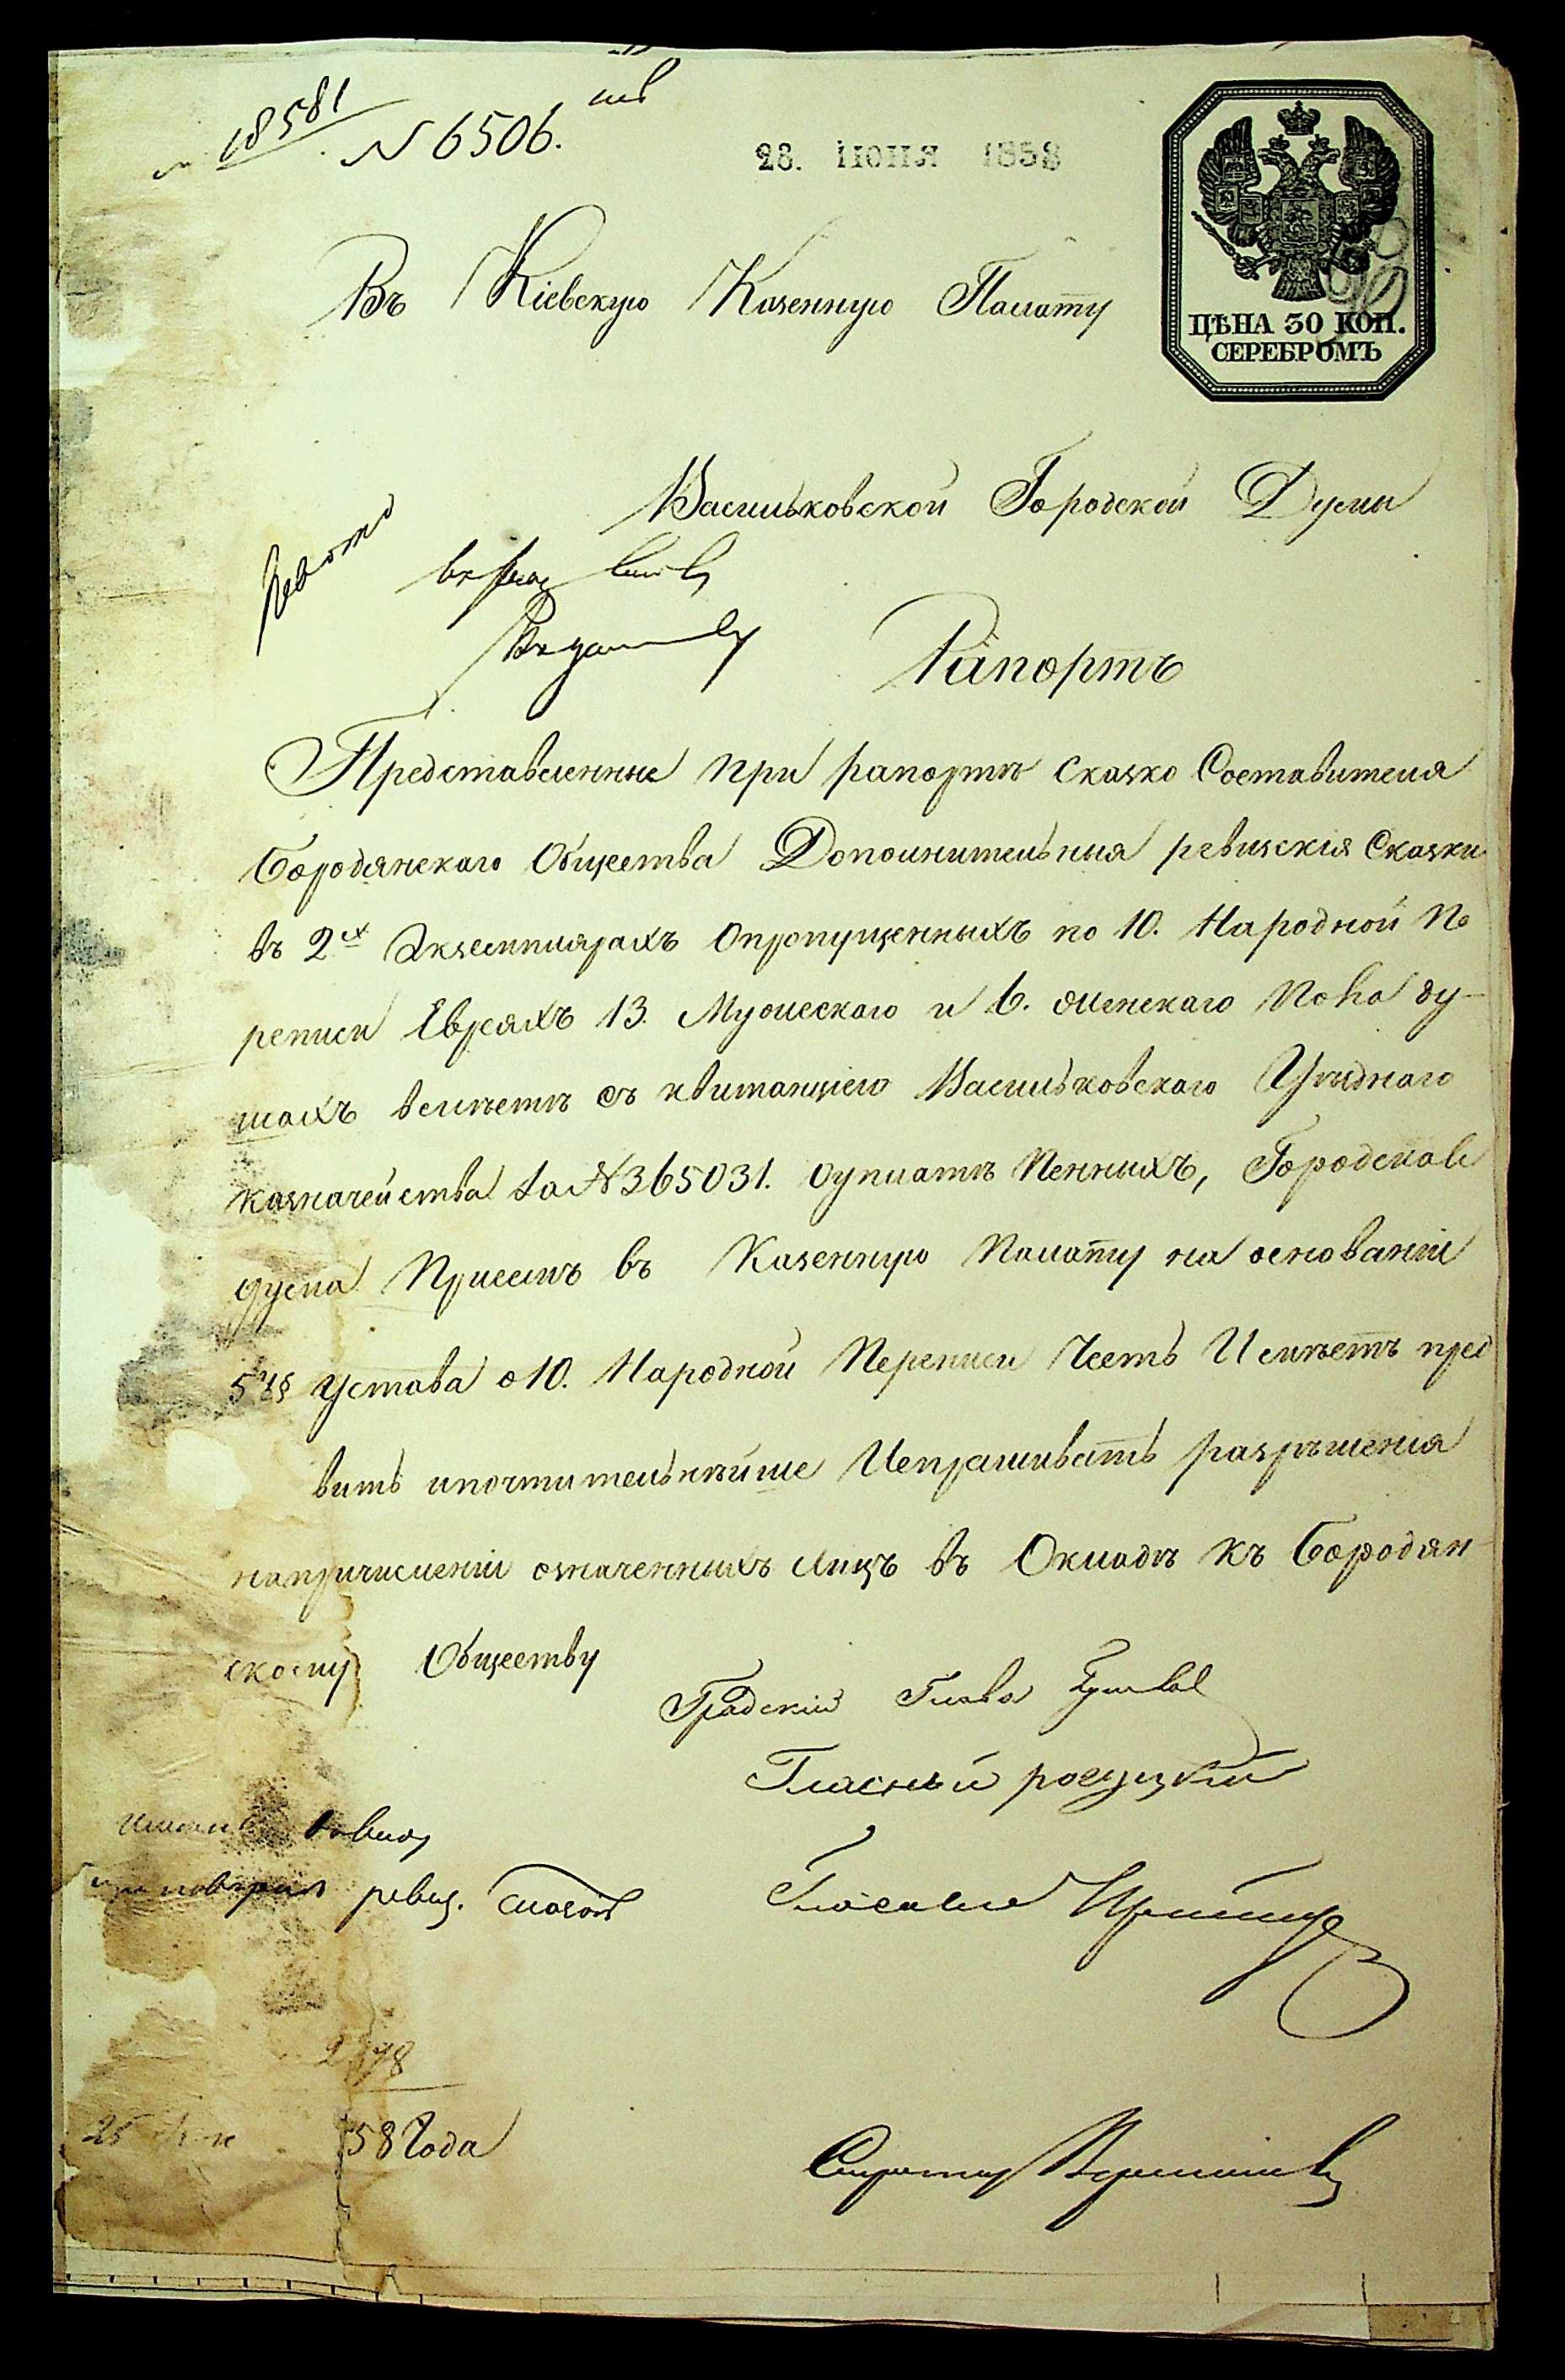 18581
N 6506.
28. ІЮНЯ 1858
Въ Кіевскую Казенную Палату
ЦѢНА 30 КОП.
СЕРЕБРОМЪ
Васильковской Городской Думы
Рапортъ
Представленные при рапортѣ Сказко Составителя
Бородянскаго Общества Дополнительныя ревизскія Сказки
въ 2хъ Экземплярахъ опропущенныхъ по 10. Народной Пе
реписи Евреяхъ 13. Мужескаго и 6. женскаго Пола ду-
шахъ вмѣстѣ съ квитанціею Васильковскаго Уѣзднаго
казначейства за N 365031. оуплатѣ Пенныхъ, Городская
дума въ Казенную Палату на основаніи
5 § Устава о 10. Народной Переписи Честь Имѣетъ пред
вить ипочтительнѣйше Испрашивать разрѣшенія
напричисленіи означенныхъ Лицъ въ Окладъ къ Бородян
скому Обществу
Градскій Глава
Гласный
ревиз.
Гласный
58 Года